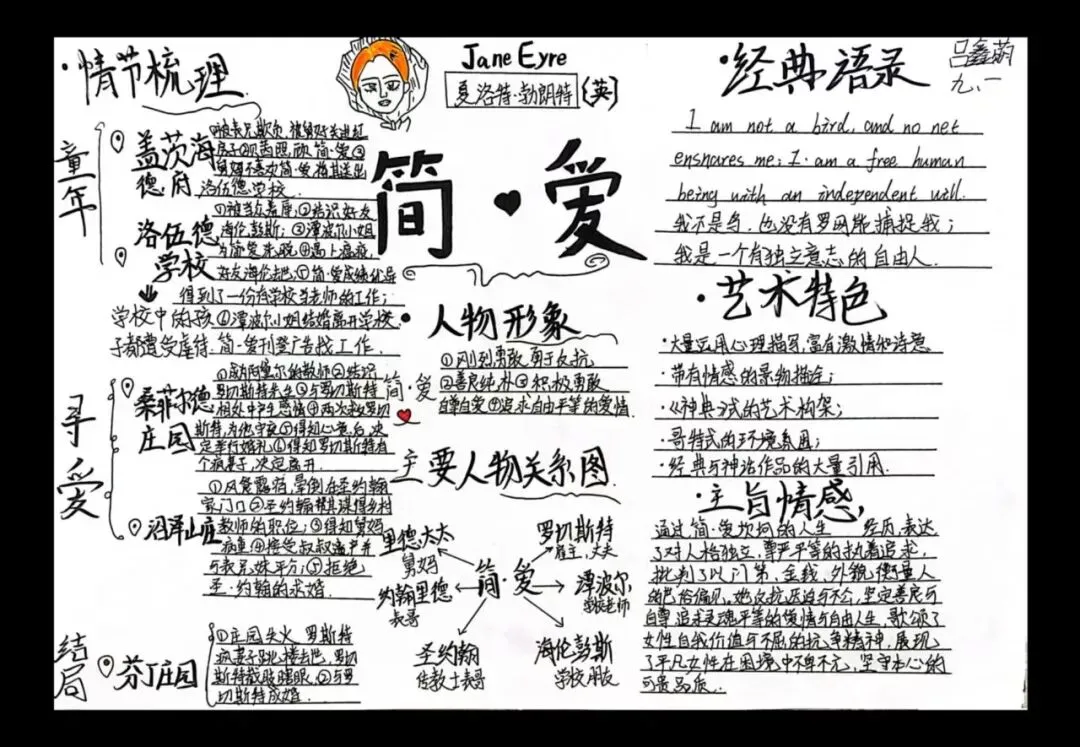 ·情节梳理
童年
盖茨海德府
①被表兄欺负，被舅妈关进红
房子②贝茜照顾简·爱③
舅妈不喜欢简·爱将其送出
洛伍德学校.
洛伍德学校
①被当众羞辱；②结识好友
海伦彭斯；③谭波尔小姐
为简爱洗脱④遇上瘟疫，
好友海伦去世⑤简·爱成绩优异
得到了一份在学校当老师的工作；
⑥谭波尔小姐结婚离开学校.
简·爱刊登广告找工作.
学校中的孩
子都遭受虐待.
寻爱
桑菲尔德庄园
的教师②结识
罗切斯特先生③与罗切斯特
相处中产生感情④两次救罗切
斯特，为他守夜⑤得知心意后，决
定举行婚礼⑥得知罗切斯特有
个疯妻子，决定离开.
沼泽山庄
①风餐露宿，晕倒在圣约翰
家门口②圣约翰帮其谋得乡村
教师的职位；③得知舅妈
病重④接受叔叔遗产并
与表兄妹平分；⑤拒绝
圣·约翰的求婚.
结局
芬丁庄园
①庄园失火，罗斯特
疯妻子跳楼去世，罗切
斯特截肢瞎眼，②与罗
切斯特成婚.
Jane Eyre
夏洛特·勃朗特(英)
简·爱
·人物形象
简·爱
①刚烈勇敢 勇于反抗
②善良纯朴③积极勇敢
自尊自爱④追求自由平等的爱情
主要人物关系图
里德太太
舅妈
罗切斯特
雇主，丈夫
约翰里德
表哥
简·爱
谭波尔
学校老师
圣约翰
传教士表哥
海伦彭斯
学校朋友
·经典语录
吕鑫萌
九、一
I am not a bird, and no net
ensnares me; I am a free human
being with an independent will.
我不是鸟，也没有罗网能捕捉我；
我是一个有独立意志的自由人.
·艺术特色
·大量应用心理描写，富有激情和诗意
·带有情感的景物描绘；
·《神典》式的艺术构架；
·哥特式的环境氛围；
·经典与神话作品的大量引用.
·主旨情感，
通过简·爱坎坷的人生 经历，表达
了对人格独立，尊严平等的执着追求，
批判了以门第，金钱，外貌衡量人
的世俗偏见，她反抗压迫与不公，坚定善良与
自尊追求灵魂平等的爱情与自由人生，歌颂了
女性自我价值与不屈的抗争精神，展现
了平凡女性在困境中不卑不亢，坚守本心的
可贵品质.